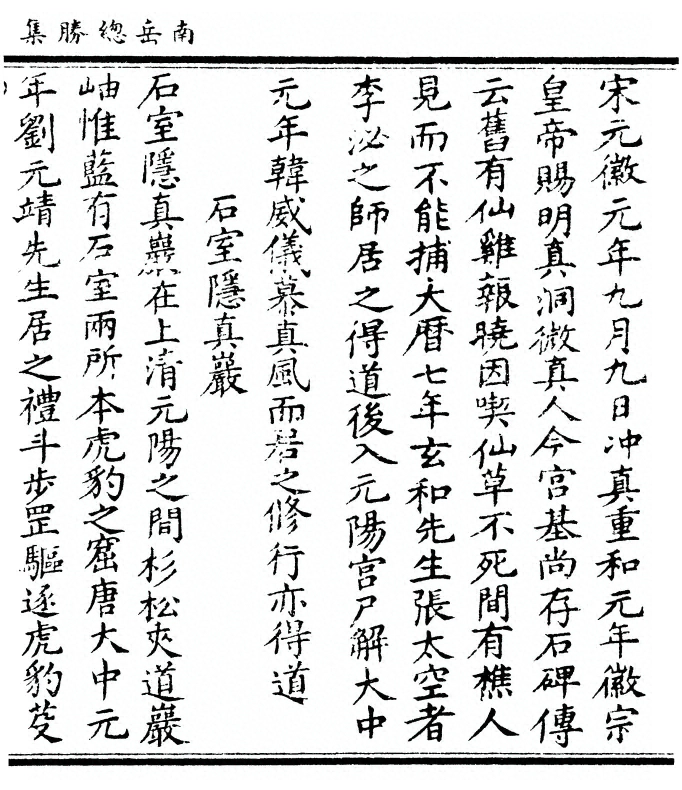 南岳總勝集
宋元徽元年九月九日冲真重和元年徽宗
皇帝賜明真洞微真人今宮基尚存石碑傳
云舊有仙雞報曉因喫仙草不死間有樵人
見而不能捕大曆七年玄和先生張太空者
李泌之師居之得道後入元陽宮尸解大中
元年韓威儀慕真風而居之修行亦得道
石室隱真巖
石室隱真巖在上清元陽之間杉松夾道巖
岫惟藍有石室兩所本虎豹之窟唐大中元
年劉元靖先生居之禮斗步罡驅逐虎豹芟